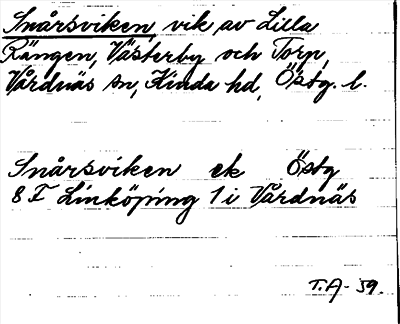 Snårsviken, vik av Lilla
Rängen, Västerby och Torp,
Vårdnäs sn, Kinda hd, Östg. l.
Snårsviken ek Östg
8 F Linköping 1 i Vårdnäs
T.A-59.